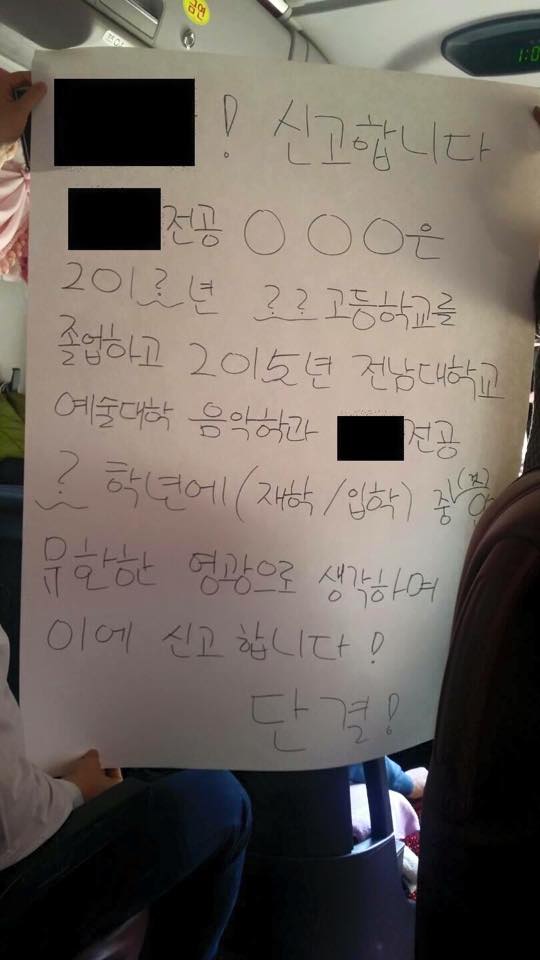 금연
1:0
! 신고합니다
전공 ○ ○ ○은
201?년 ??고등학교를
졸업하고 2015년 전남대학교
예술대학 음악학과 전공
? 학년에 (재학/입학) 중
무한한 영광으로 생각하며
이에 신고합니다!
단결!